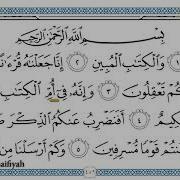 بِسْمِ ٱللَّهِ ٱلرَّحْمَٰنِ ٱلرَّحِيمِ
١ وَٱلْكِتَٰبِ ٱلْمُبِينِ ٢ إِنَّا جَعَلْنَٰهُ قُرْءَٰنً
كُمْ تَعْقِلُونَ ٣ وَإِنَّهُۥ فِىٓ أُمِّ ٱلْكِتَٰبِ
كِيمٌ ٤ أَفَنَضْرِبُ عَنكُمُ ٱلذِّكْرَ صَ
نتُمْ قَوْمًا مُّسْرِفِينَ ٥ وَكَمْ أَرْسَلْنَا مِن
aifiyah